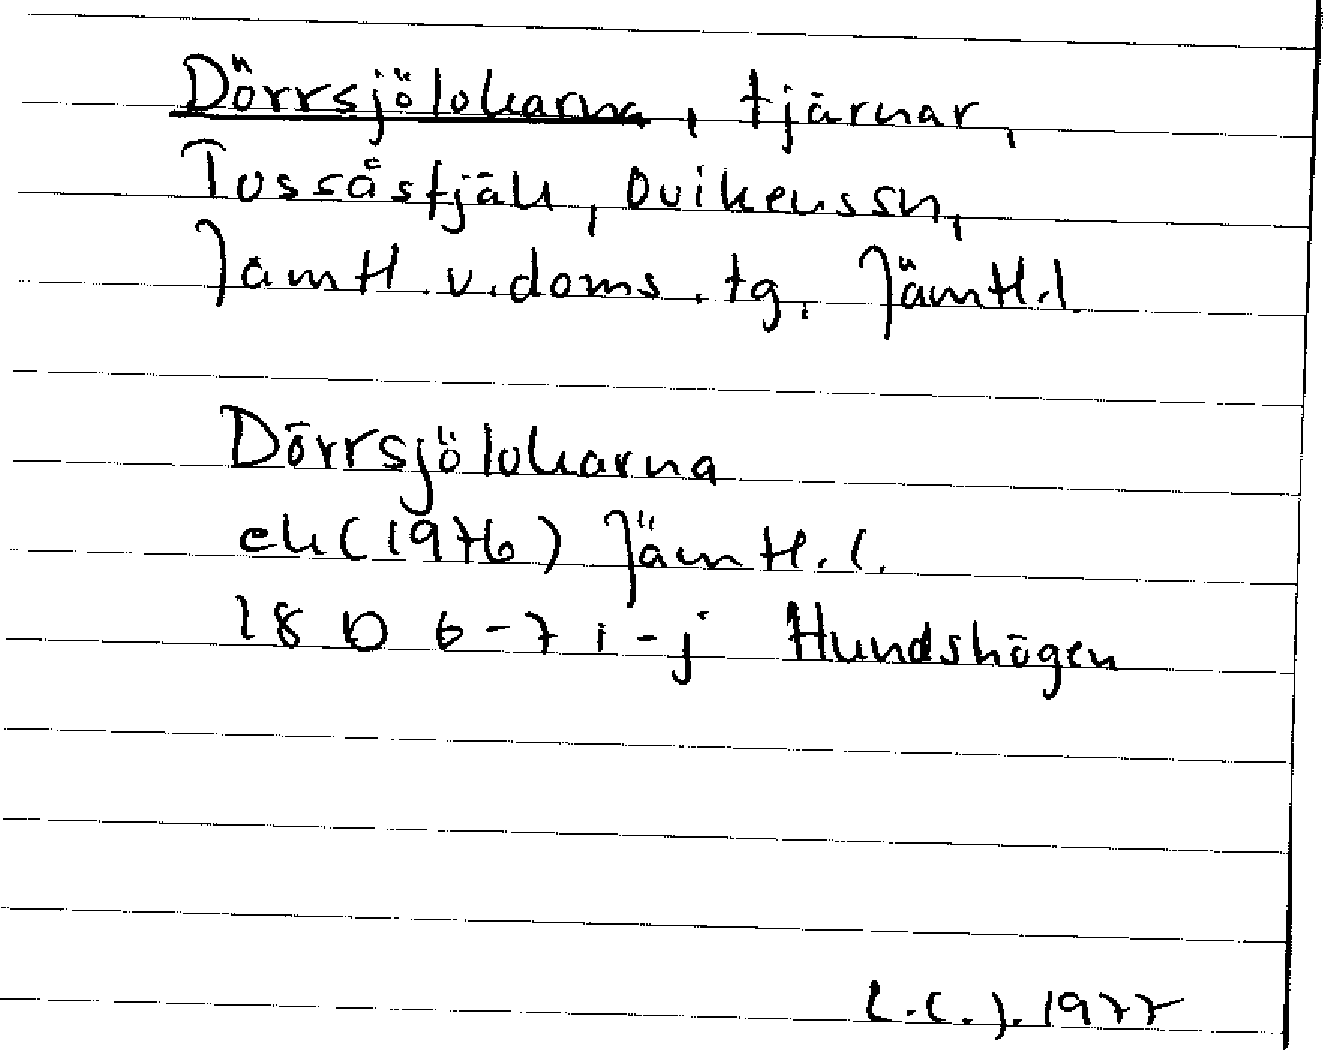 Dörrsjölokarna, tjärnar,
Tossåsfjäll, Ovikens sn,
Jämtl. v. doms. tg. Jämtl. l.
Dörrsjölokarna
ek (1976) Jämtl. l.
18 D 6-7 i-j Hundshögen
L.C.J. 1977